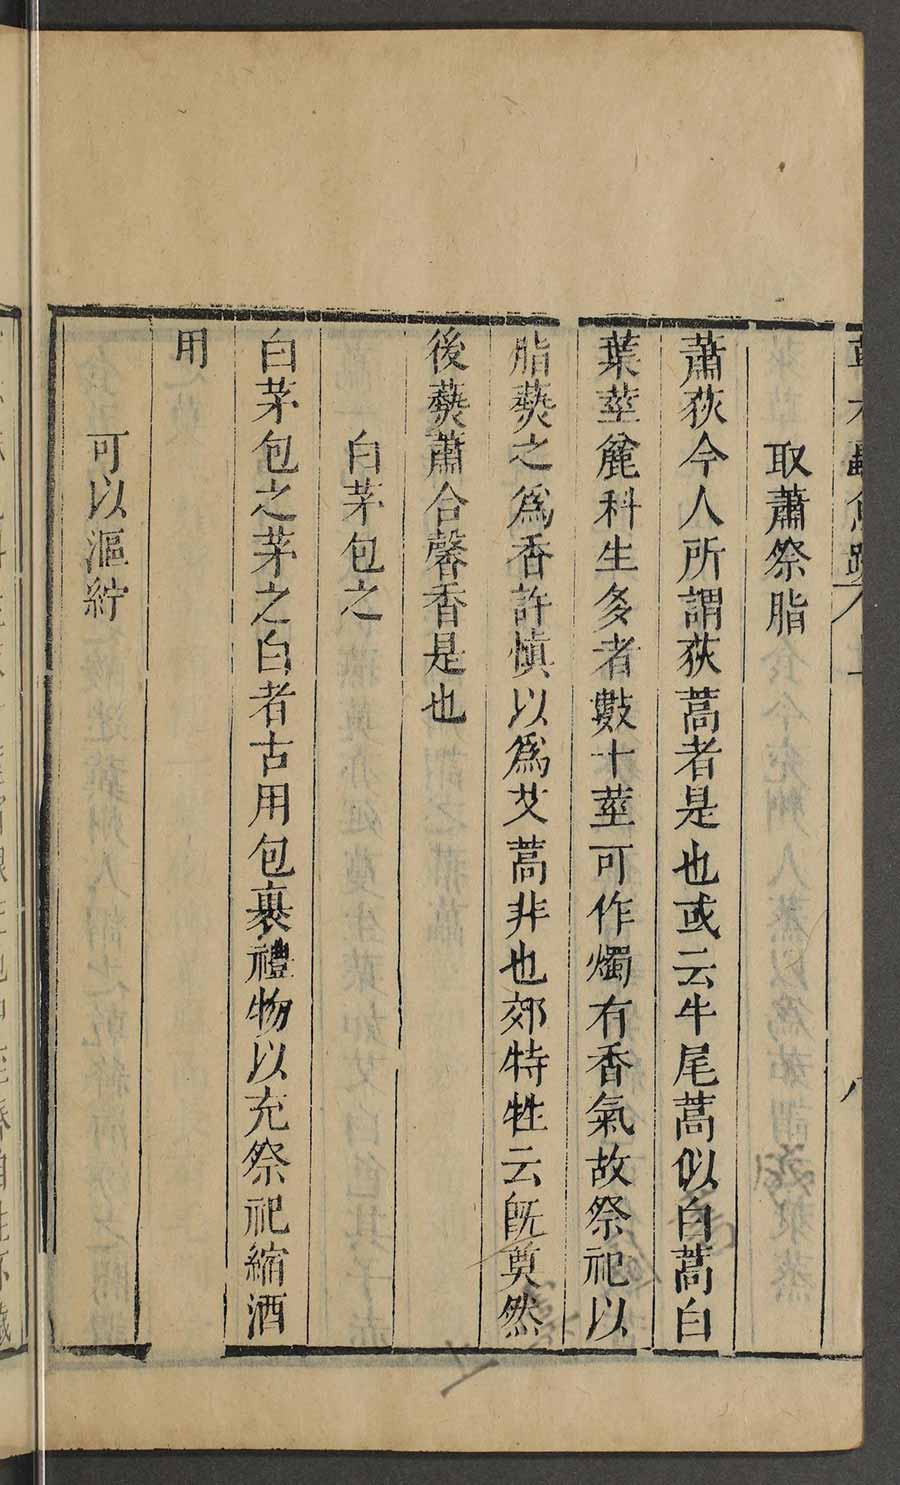 取蕭祭脂
蕭荻今人所謂荻蒿者是也或云牛尾蒿似白蒿白
葉莖麄科生多者數十莖可作燭有香氣故祭祀以
脂爇之爲香許慎以爲艾蒿非也郊特牲云旣奠然
後爇蕭合馨香是也
白茅包之
白茅包之茅之白者古用包裹禮物以充祭祀縮酒
用
可以漚紵